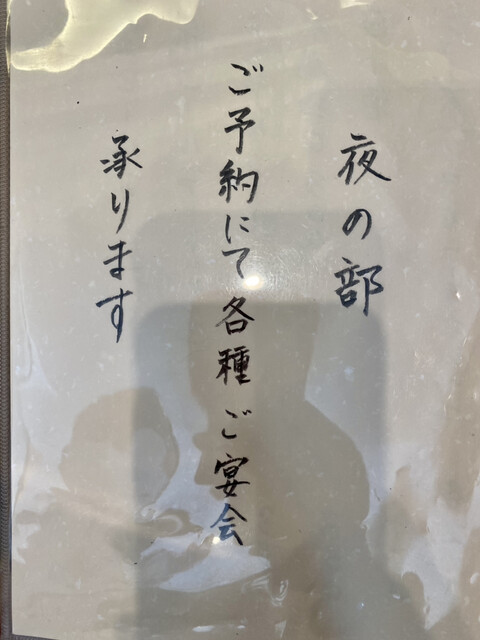 夜の部
ご予約にて各種ご宴会
承ります